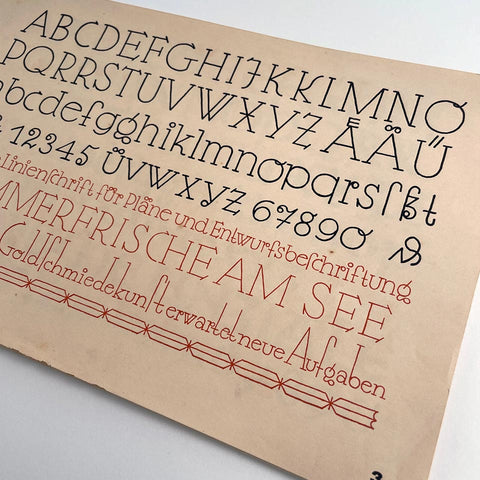 ABCDEFGHIJKKLMNO
PQRRSTUVWXYZ ĀÄŰ
bcdefgghiklmnopqrsſßt
12345 üvwxyz 67890
Linienſchrift für Pläne und Entwurfsbeſchriftung
MMERFRISCHE AM SEE
Goldſchmiedekunſt erwartet neue Aufgaben
3